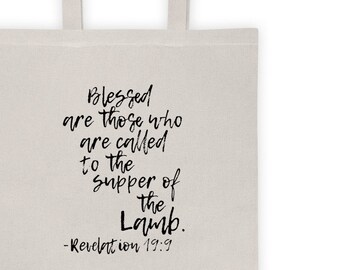 Blessed
are those who
are called
to the
supper of
the
Lamb.
-Revelation 19:9